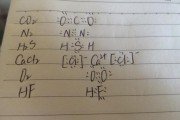 CO₂ :Ö::C::Ö:
N₂ :N⋮⋮N:
H₂S H:S̈:H
CaCl₂ [:C̈l:]⁻ Ca²⁺ [:C̈l:]⁻
O₂ :Ö::Ö:
HF H:F̈: